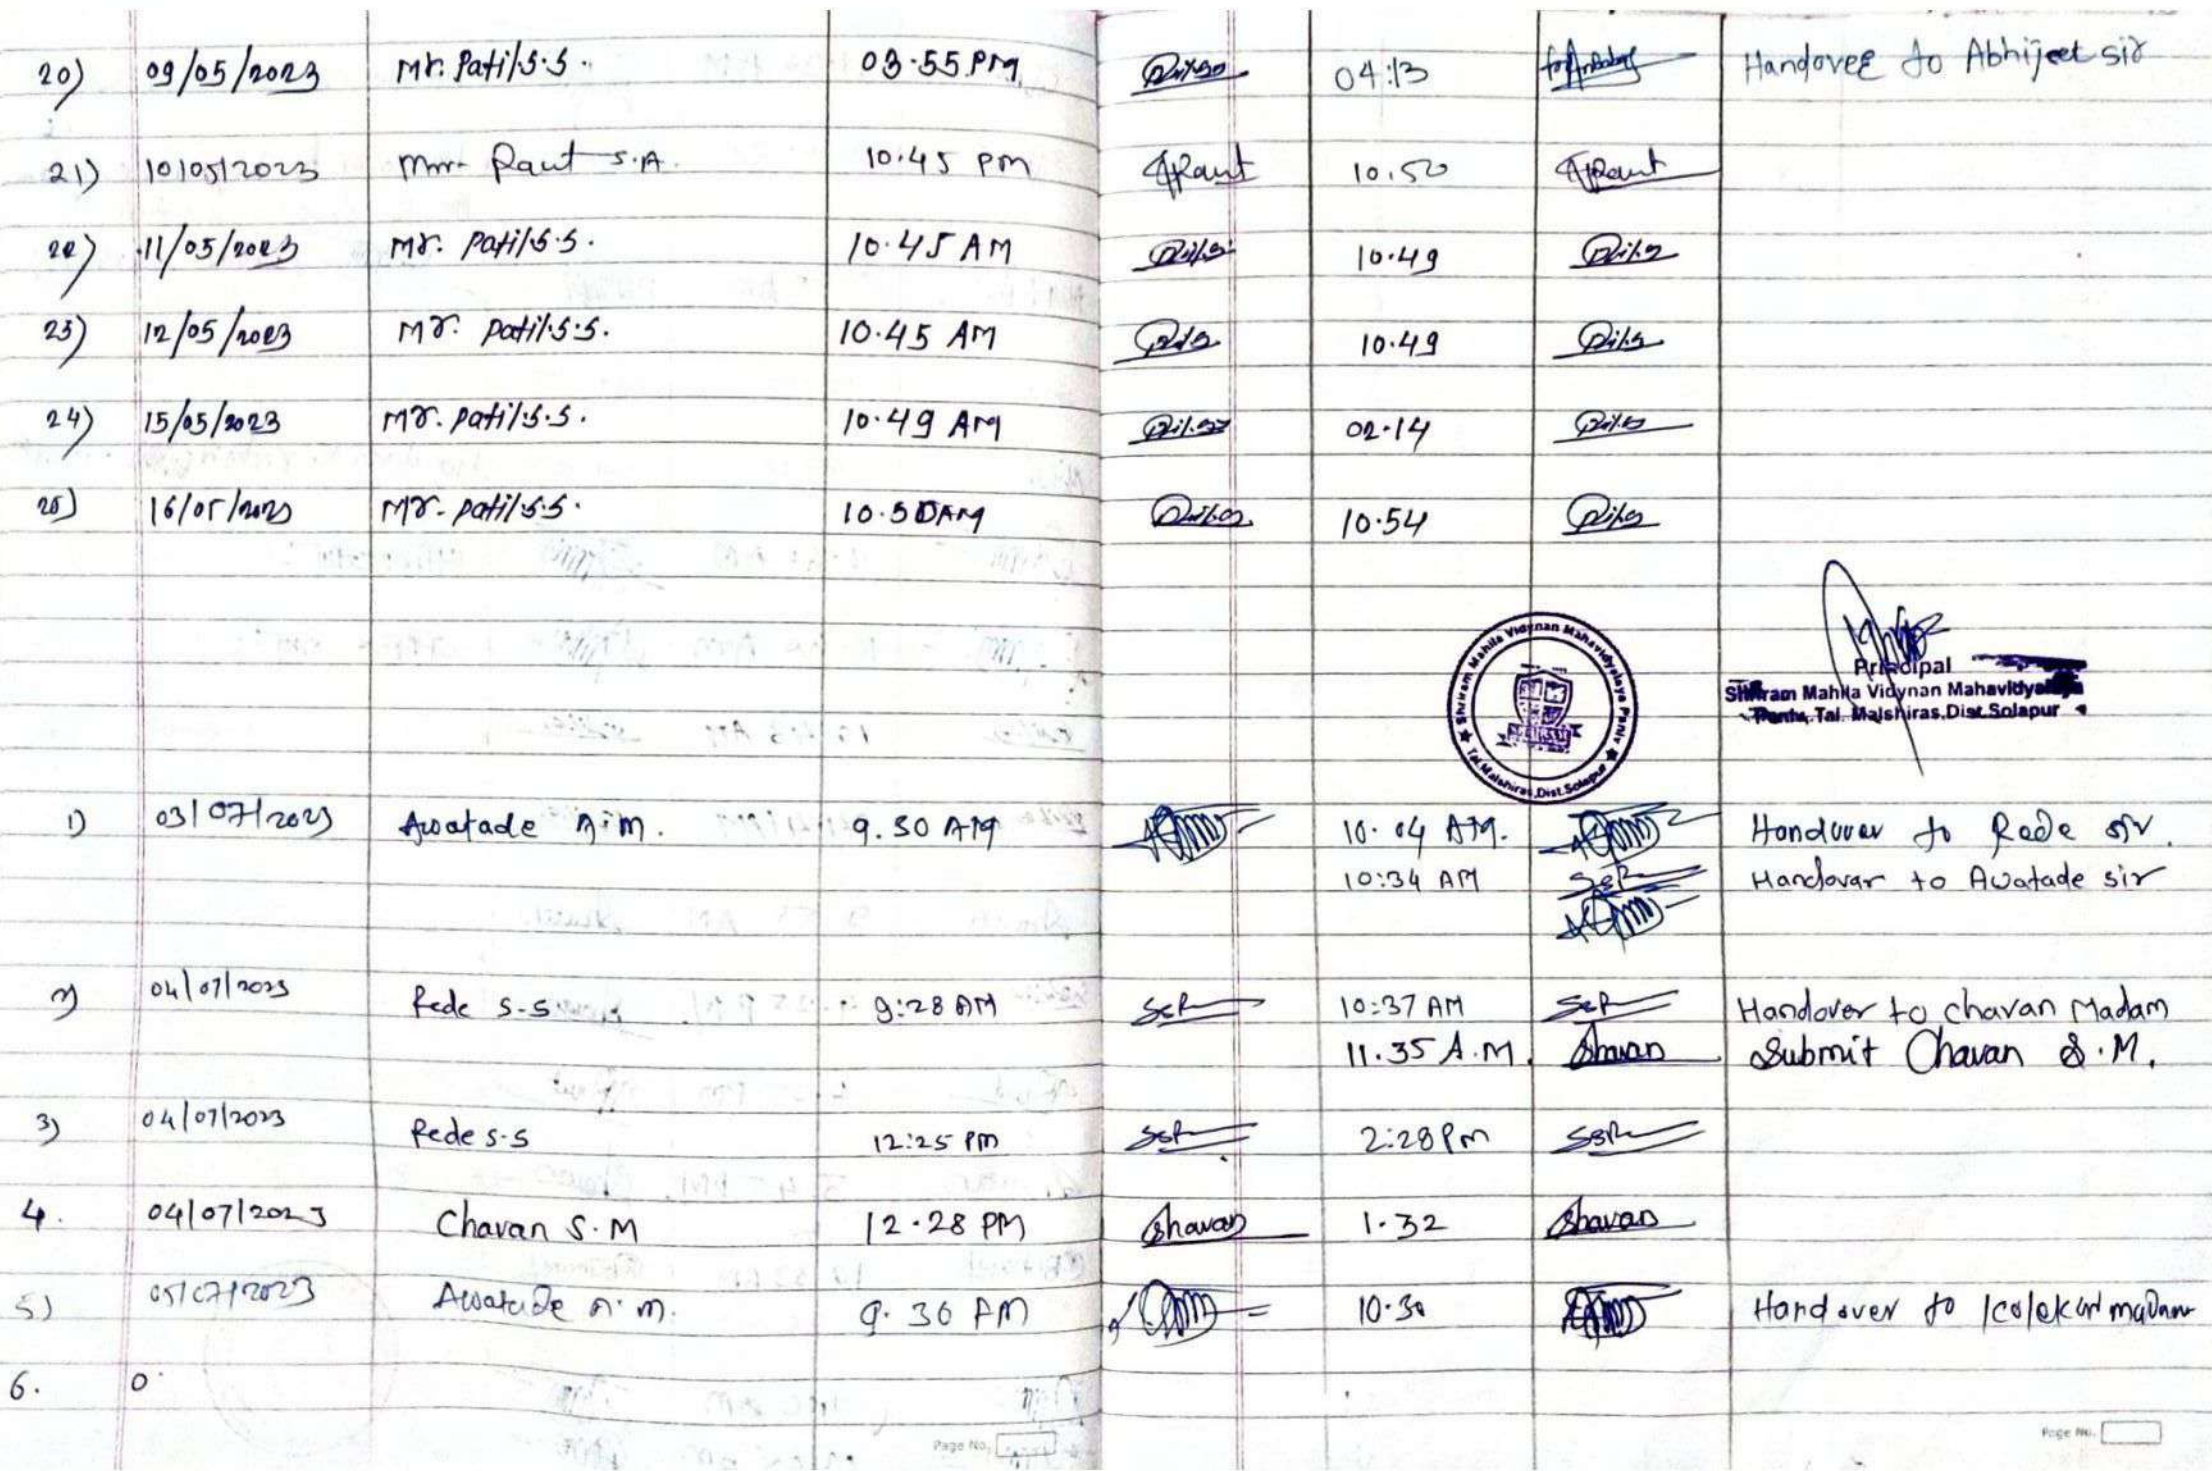 20) 09/05/2023 Mr. Patil S.S. 03.55 PM 04:13 Handover to Abhijeet sir
21) 10/05/2023 Raut S.A. 10.45 PM SRaut 10.50 SRaut
22) 11/05/2023 Mr. Patil S.S. 10.45 AM 10.49
23) 12/05/2023 Mr. Patil S.S. 10.45 AM 10.49
24) 15/05/2023 Mr. Patil S.S. 10.49 AM 02.14
25) 16/05/2023 Mr. Patil S.S. 10.50 AM 10.54
Shriram Mahila Vidynan Mahavidyalaya Paniv
Tal.Malshiras,Dist.Solapur
Principal
Shriram Mahila Vidynan Mahavidyalaya
Paniv, Tal. Malshiras,Dist.Solapur
1) 03/07/2023 Awatade A.M. 9.30 AM 10.04 AM. Handover to Rede sir.
10:34 AM SSR Handovar to Awatade sir
2) 04/07/2023 Rede S-S 9:28 AM SSR 10:37 AM SSR Handover to chavan Madam
11.35 A.M. Shavan Submit Chavan S.M.
3) 04/07/2023 Rede S-S 12:25 PM SSR 2:28 PM SSR
4. 04/07/2023 Chavan S.M 12.28 PM Shavan 1.32 Shavan
5) 05/07/2023 Awatade A.M. 9.30 AM 10.30 Handover to Kolekar madam
6. 0
Page No. Page No.